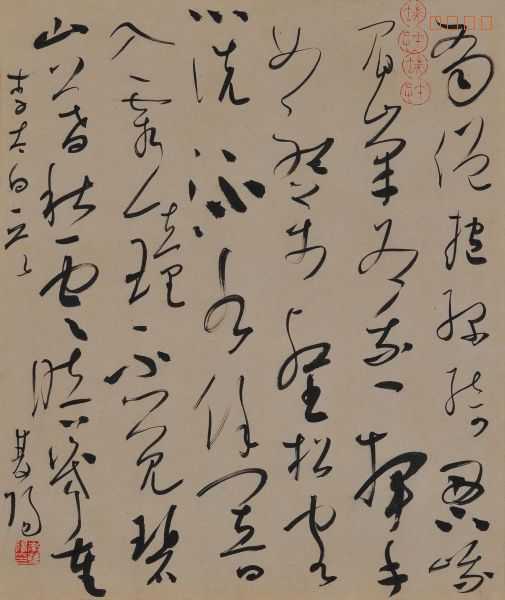 蜀僧抱綠綺西下峨
眉峰為我一揮手
如聽萬壑松客
心洗流水餘響
入霜鐘不覺碧
山暮秋雲暗幾重
李太白